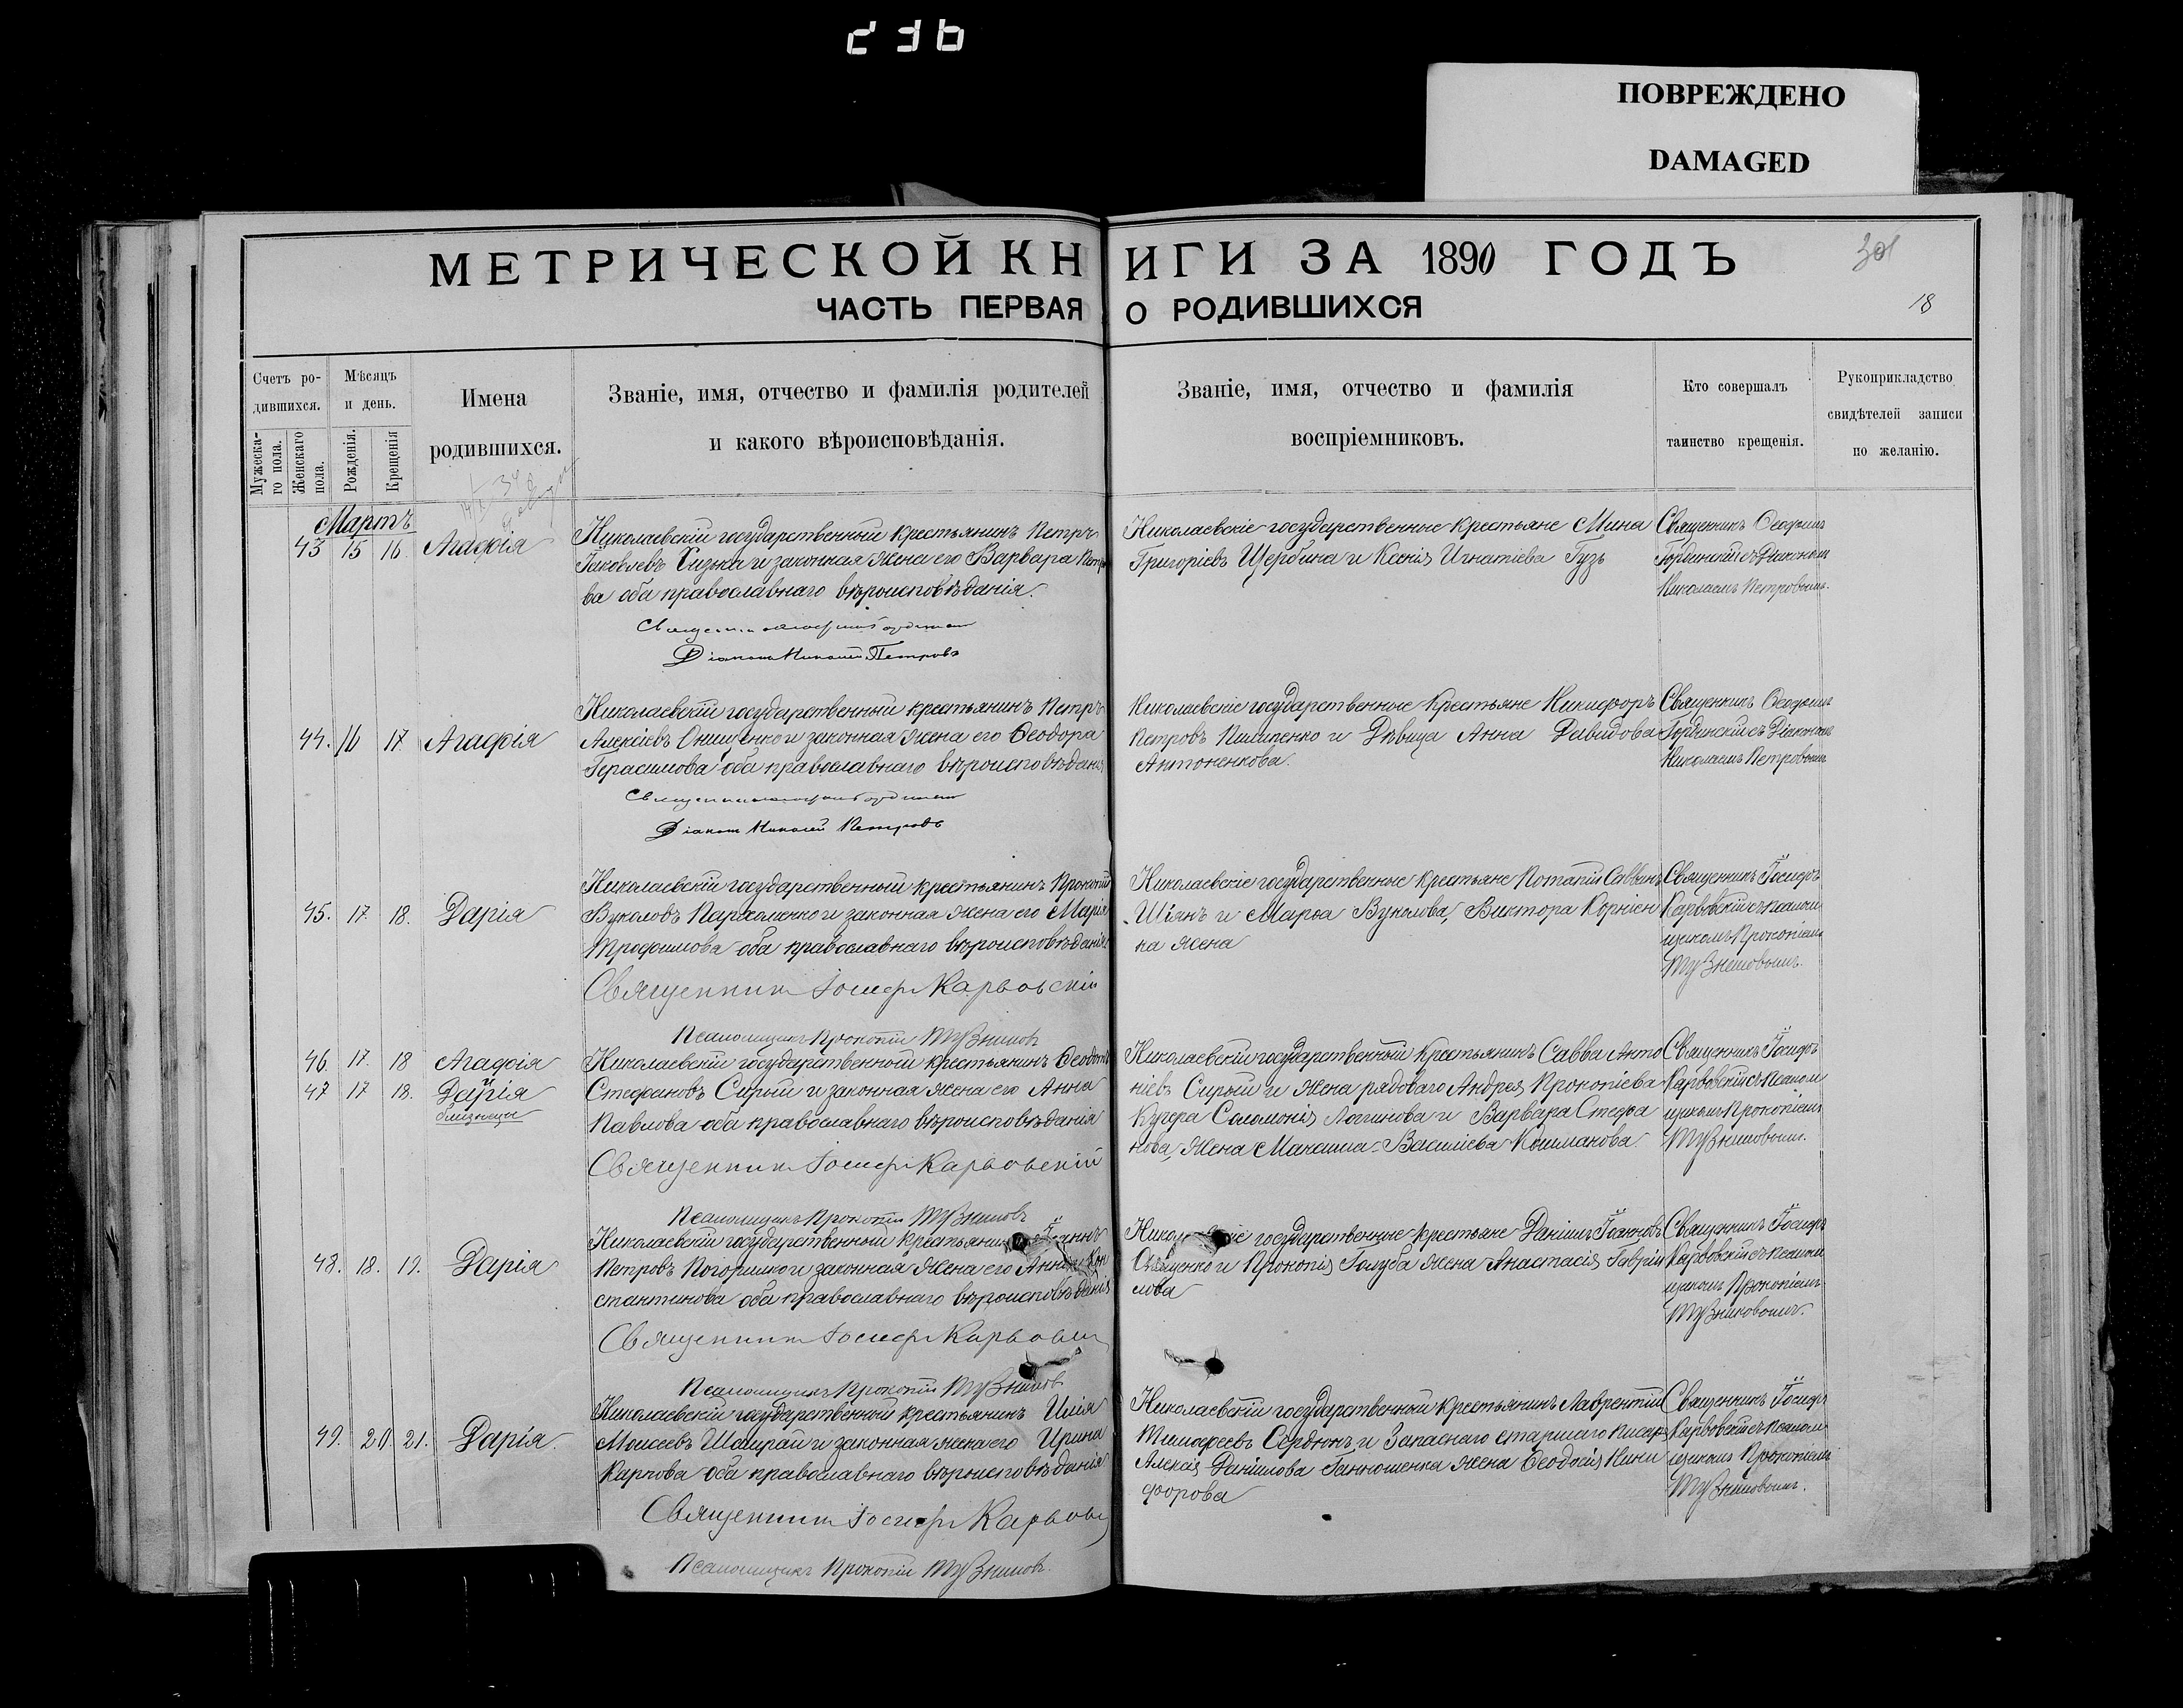 236
ПОВРЕЖДЕНО
DAMAGED
МЕТРИЧЕСКОЙ КНИГИ ЗА 1890 ГОДЪ
301
ЧАСТЬ ПЕРВАЯ О РОДИВШИХСЯ
18
Счетъ родившихся.
Мужескаго пола.
Женскаго пола.
Мѣсяцъ и день.
Рожденія.
Крещенія
Имена родившихся.
Званіе, имя, отчество и фамилія родителей
и какого вѣроисповѣданія.
Званіе, имя, отчество и фамилія
воспріемниковъ.
Кто совершалъ
таинство крещенія.
Рукоприкладство
свидѣтелей записи
по желанію.
Мартъ
43 15 16. Агафія
Николаевскій государственный крестьянинъ Петръ
Іаковлевъ и законная жена его Варвара Петро
ва оба православнаго вѣроисповѣданія.
Діаконъ Николай Петровъ
Николаевскіе государственные крестьяне Мина
Григоріевъ Щербина и Ксенія Игнатіева Гузь
Священникъ
съ Діакономъ
Николаемъ Петровымъ.
44. 16 17 Агафія
Николаевскій государственный крестьянинъ Петръ
Алексіевъ Онищенко и законная жена его Ѳеодора
Герасимова оба православнаго вѣроисповѣданія
Діаконъ Николай Петровъ
Николаевскіе государственные крестьяне Никифоръ
Петровъ Пилипенко и Дѣвица Анна Давидова
Антоненкова.
Священникъ
съ Діакономъ
Николаемъ Петровымъ
45. 17. 18. Дарія
Николаевскій государственный крестьянинъ Прокопій
Вуколовъ Пархоменко и законная жена его Марія
Трофимова оба православнаго вѣроисповѣданія.
Священникъ Іосифъ Карвовскій
Псаломщикъ Прокопій
Николаевскіе государственные крестьяне Потапій Саввинъ
Шіянъ и Марѳа Вуколова, Виктора Корніен
ка жена
Священникъ Іосифъ
Карвовскій съ псалом
щикомъ Прокопіемъ
46. 17. 18 Агафія
47 17 18. Дарія
близнецы
Николаевскій государственный крестьянинъ Ѳеодотъ
Стефановъ Сирый и законная жена его Анна
Павлова оба православнаго вѣроисповѣданія
Священникъ Іосифъ Карвовскій
Псаломщикъ Прокопій
Николаевскій государственный крестьянинъ Савва Анто
ніевъ Сирый и жена рядоваго Андрея Прокопіева
Кучера Соломонія Логинова и Варвара Стефа
нова, жена Максима Василіева Кошманова
Священникъ Іосифъ
Карвовскій съ псалом
щикомъ Прокопіемъ
48. 18. 19. Дарія
Николаевскій государственный крестьянинъ Іоаннъ
Петровъ и законная жена его Анна Кон
стантинова оба православнаго вѣроисповѣданія
Священникъ Іосифъ
Псаломщикъ Прокопій
государственные крестьяне Даніилъ Іоанновъ
и Прокопія Голуба жена Анастасія Гавріи
лова
Священникъ Іосифъ
Карвовскій съ псалом
щикомъ Прокопіемъ
49. 20 21. Дарія.
Николаевскій государственный крестьянинъ Илія
Моисеевъ Шапрай и законная жена его Ирина
Карпова оба православнаго вѣроисповѣданія
Священникъ Іосифъ
Псаломщикъ Прокопій
Николаевскій государственный крестьянинъ Лаврентій
Тимоѳеевъ Сердюкъ и Запаснаго старшаго писаря
Алексія Даніилова жена Ѳеодосія Ники
форова
Священникъ Іосифъ
Карвовскій съ псалом
щикомъ Прокопіемъ